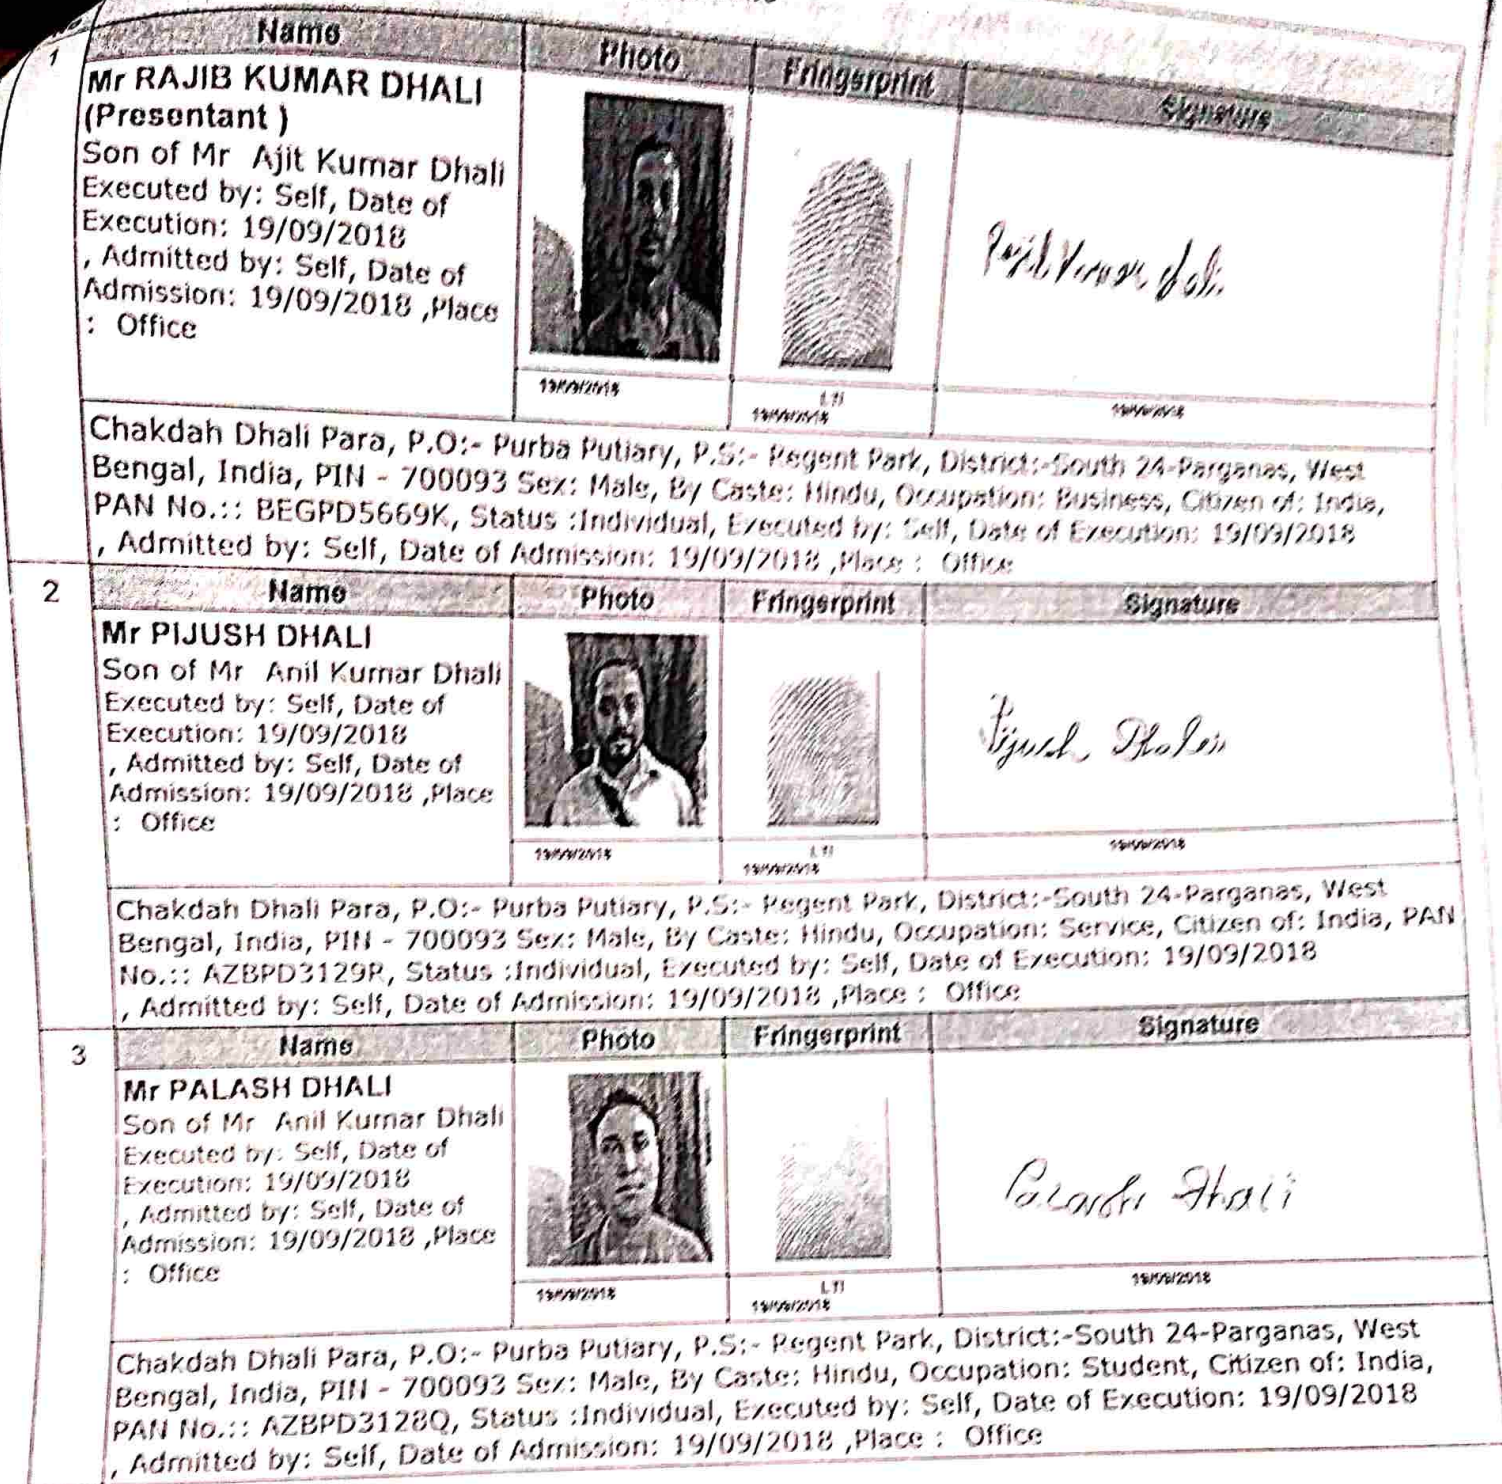 1
Name Photo Fringerprint Signature
Mr RAJIB KUMAR DHALI
(Presentant )
Son of Mr Ajit Kumar Dhali
Executed by: Self, Date of
Execution: 19/09/2018
, Admitted by: Self, Date of
Admission: 19/09/2018 ,Place
: Office
Rajib Kumar Dhali
19/09/2018 LTI 19/09/2018
19/09/2018
Chakdah Dhali Para, P.O:- Purba Putiary, P.S:- Regent Park, District:-South 24-Parganas, West
Bengal, India, PIN - 700093 Sex: Male, By Caste: Hindu, Occupation: Business, Citizen of: India,
PAN No.:: BEGPD5669K, Status :Individual, Executed by: Self, Date of Execution: 19/09/2018
, Admitted by: Self, Date of Admission: 19/09/2018 ,Place : Office
2
Name Photo Fringerprint Signature
Mr PIJUSH DHALI
Son of Mr Anil Kumar Dhali
Executed by: Self, Date of
Execution: 19/09/2018
, Admitted by: Self, Date of
Admission: 19/09/2018 ,Place
: Office
Pijush Dhali
19/09/2018 LTI 19/09/2018
19/09/2018
Chakdah Dhali Para, P.O:- Purba Putiary, P.S:- Regent Park, District:-South 24-Parganas, West
Bengal, India, PIN - 700093 Sex: Male, By Caste: Hindu, Occupation: Service, Citizen of: India, PAN
No.:: AZBPD3129R, Status :Individual, Executed by: Self, Date of Execution: 19/09/2018
, Admitted by: Self, Date of Admission: 19/09/2018 ,Place : Office
3
Name Photo Fringerprint Signature
Mr PALASH DHALI
Son of Mr Anil Kumar Dhali
Executed by: Self, Date of
Execution: 19/09/2018
, Admitted by: Self, Date of
Admission: 19/09/2018 ,Place
: Office
Palash Dhali
19/09/2018 LTI 19/09/2018
19/09/2018
Chakdah Dhali Para, P.O:- Purba Putiary, P.S:- Regent Park, District:-South 24-Parganas, West
Bengal, India, PIN - 700093 Sex: Male, By Caste: Hindu, Occupation: Student, Citizen of: India,
PAN No.:: AZBPD3128Q, Status :Individual, Executed by: Self, Date of Execution: 19/09/2018
, Admitted by: Self, Date of Admission: 19/09/2018 ,Place : Office